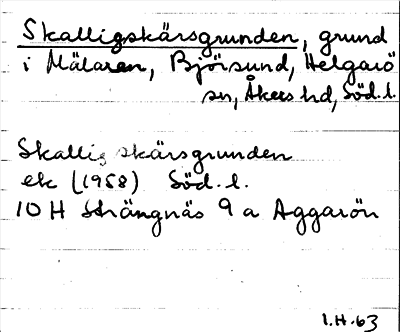 Skalligskärsgrunden, grund
i Mälaren, Björsund, Helgarö
sn, Åkers hd, Söd. l.
Skallig skärsgrunden
ek (1958) Söd. l.
10 H Strängnäs 9 a Aggarön
I.H.63